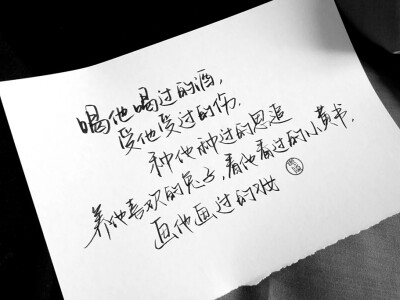 喝他喝过的酒，
受他受过的伤.
种他种过的思追
养他喜欢的兔子，看他看过的小黄书，
画他画过的妆